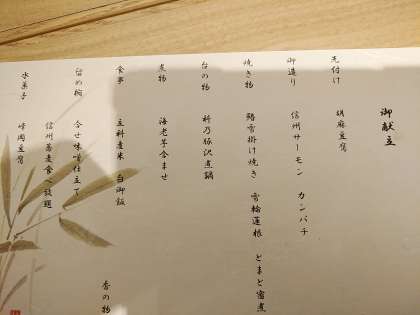 御献立
先付け 胡麻豆腐
御造り 信州サーモン カンパチ
焼き物 雪掛け焼き 雪輪蓮根 とまと蜜煮
台の物
煮物 海老芋含ませ
食事 立科産米 白御飯
香の物
留め椀 合せ味噌仕立て
信州蕎麦食べ放題
水菓子 峰岡豆腐